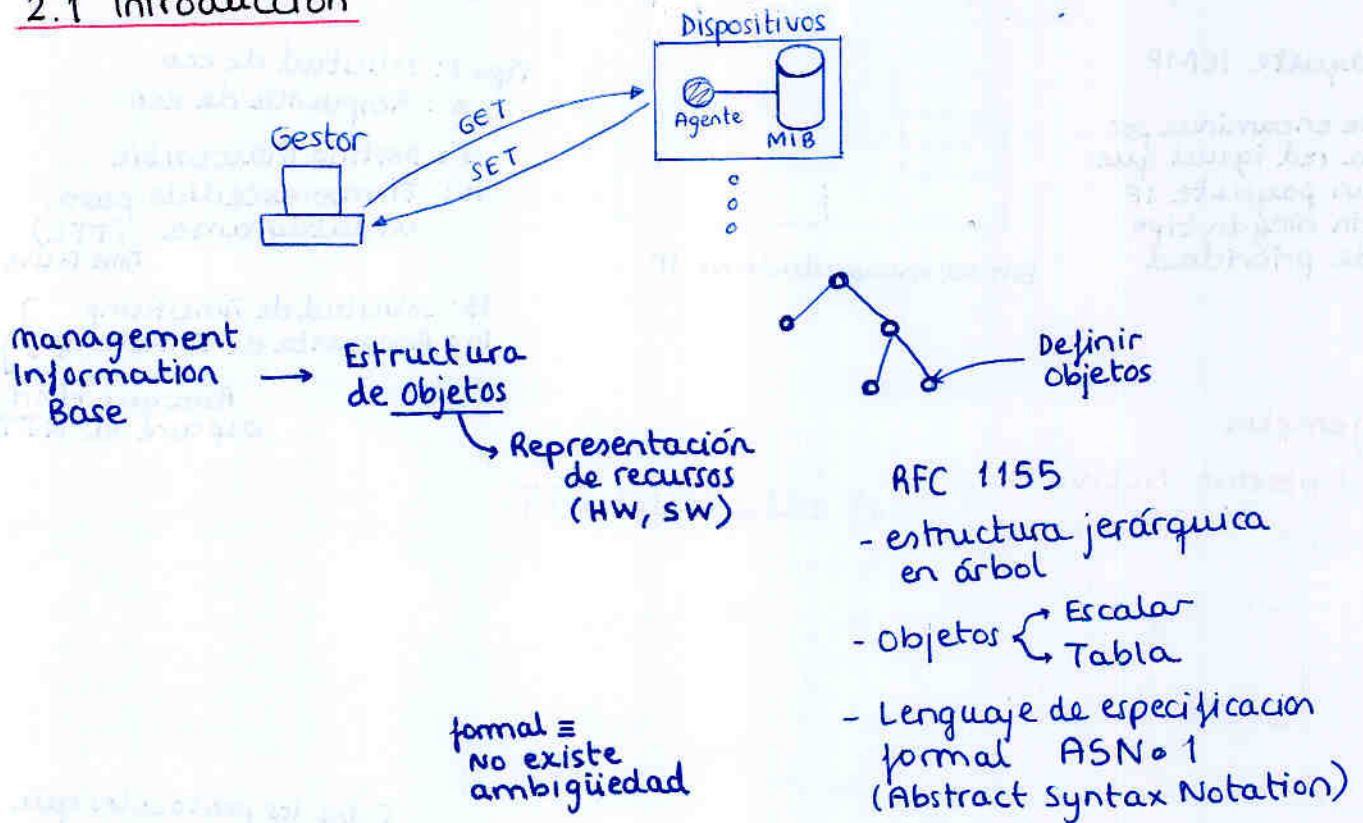 2.1 Introducción
Dispositivos
Agente
MIB
Gestor
GET
SET
management
Information
Base
→ Estructura
de Objetos
Representación
de recursos
(HW, SW)
Definir
objetos
RFC 1155
- estructura jerárquica
en árbol
- Objetos
Escalar
Tabla
- Lenguaje de especificacion
formal ASN.1
(Abstract Syntax Notation)
formal ≡
No existe
ambigüedad